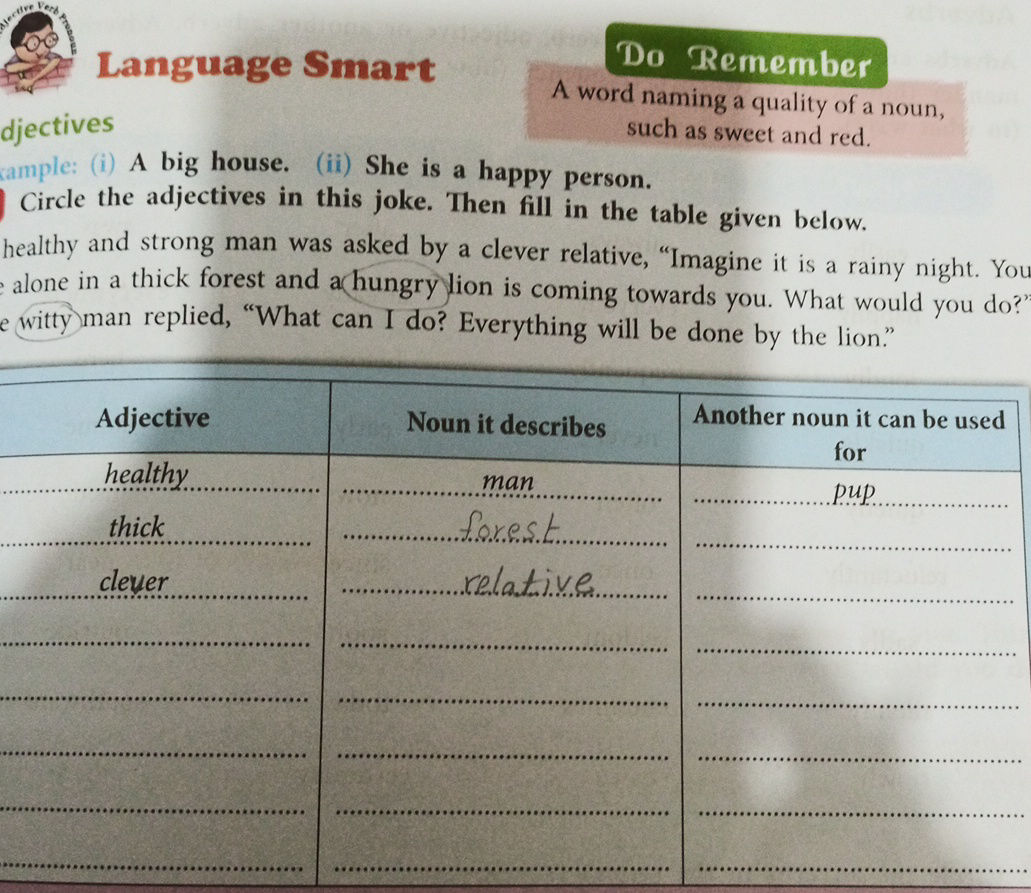 Verb Pronoun
Language Smart
Do Remember
A word naming a quality of a noun,
such as sweet and red.
djectives
xample: (i) A big house. (ii) She is a happy person.
Circle the adjectives in this joke. Then fill in the table given below.
healthy and strong man was asked by a clever relative, “Imagine it is a rainy night. You
e alone in a thick forest and a hungry lion is coming towards you. What would you do?”
e witty man replied, “What can I do? Everything will be done by the lion.”
Adjective Noun it describes Another noun it can be used for
healthy man pup
thick forest
clever relative